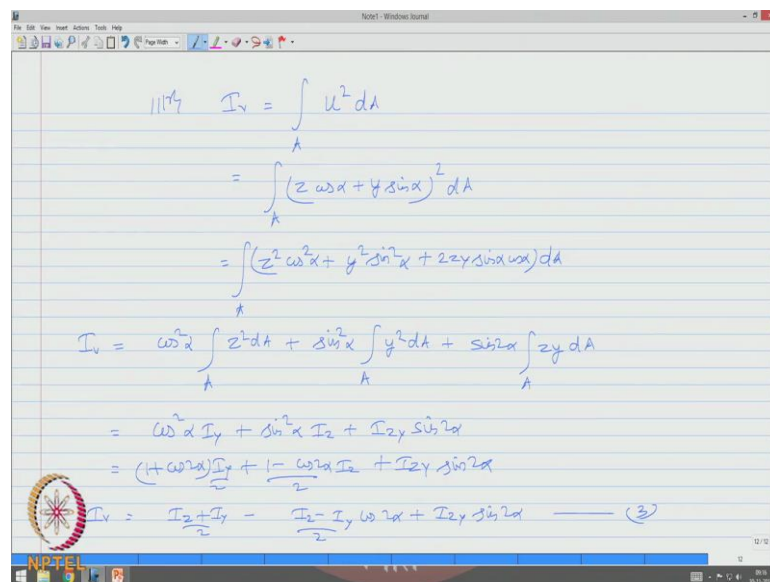 Note1 - Windows Journal
File Edit View Insert Actions Tools Help
Page Width
IIIly I_v = ∫_A u² dA
= ∫_A (z cosα + y sinα)² dA
= ∫_A (z² cos²α + y² sin²α + 2zy sinα cosα) dA
I_v = cos²α ∫_A z² dA + sin²α ∫_A y² dA + sin2α ∫_A zy dA
= cos²α I_y + sin²α I_z + I_zy sin2α
= (1+cos2α) I_y/2 + (1-cos2α I_z)/2 + I_zy sin2α
I_v = (I_z+I_y)/2 - (I_z-I_y)/2 cos2α + I_zy sin2α —— (3)
12/12
12
NPTEL